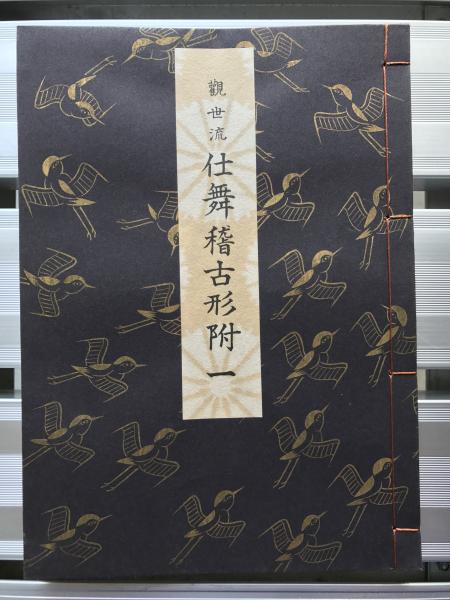 觀世流仕舞稽古形附一